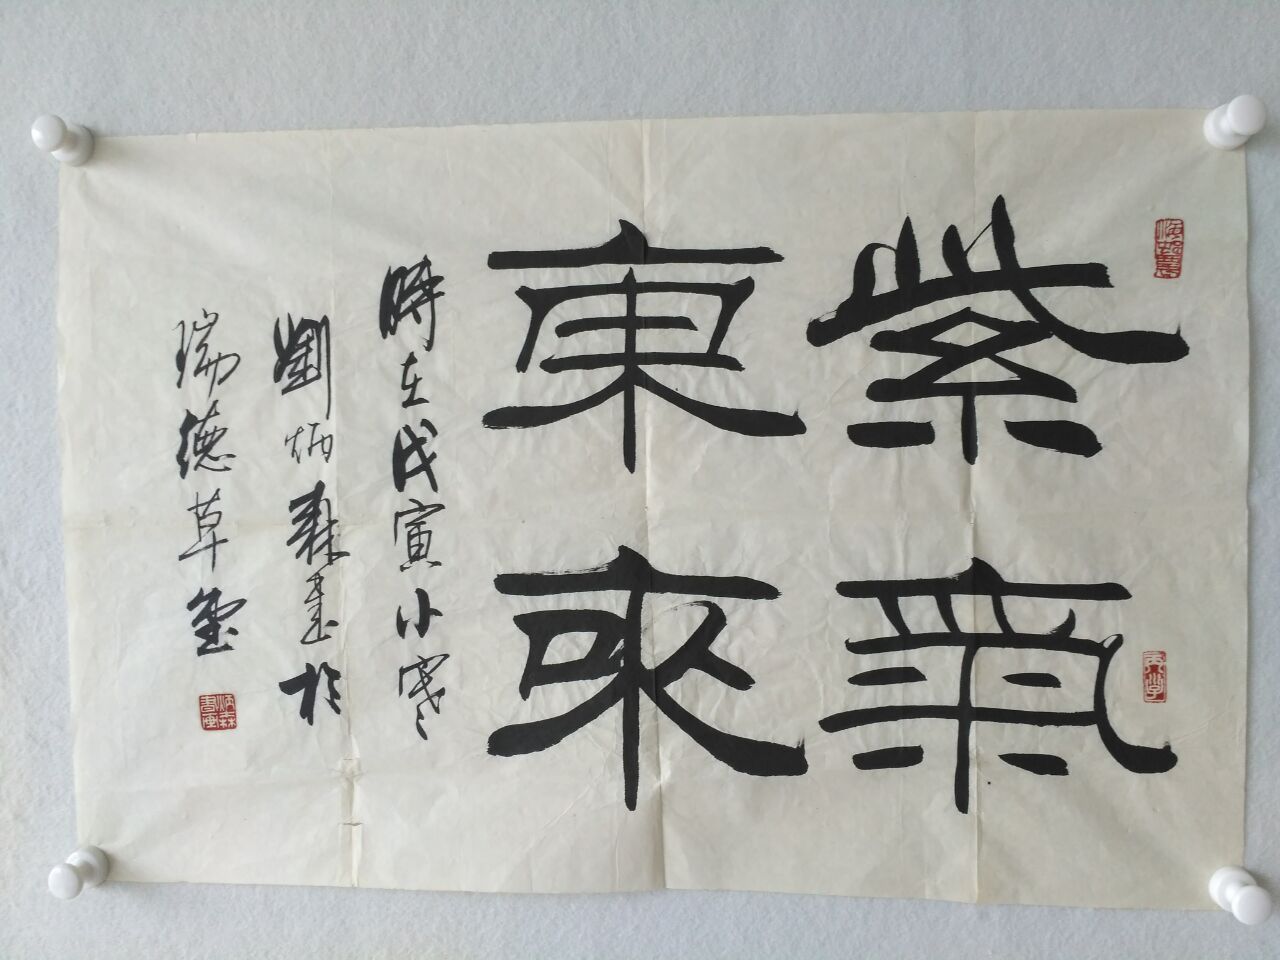 紫氣
東來
時在戊寅小寒
劉炳森書於
瑞德草堂
炳森書画